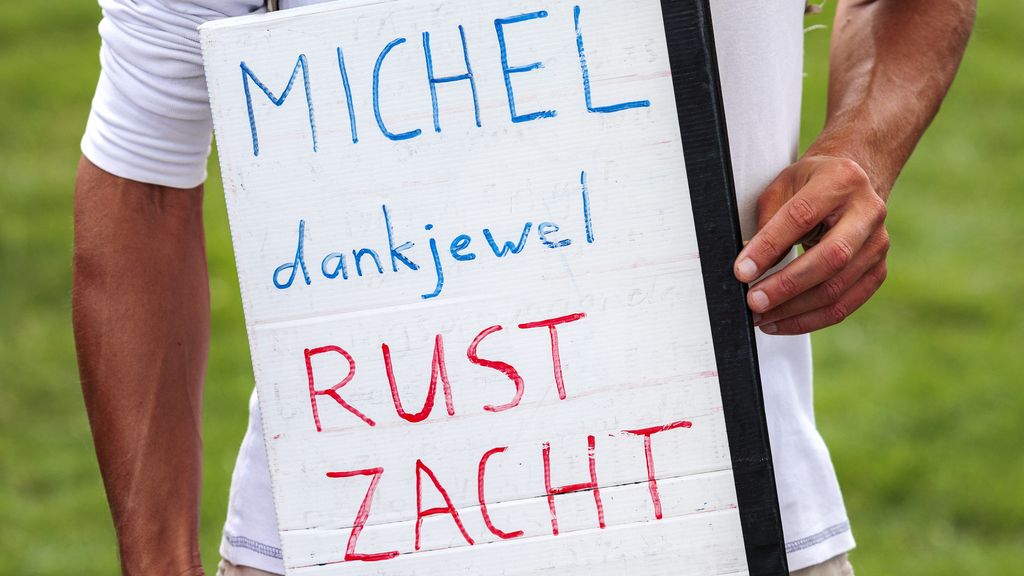 MICHEL
dankjewel
RUST
ZACHT